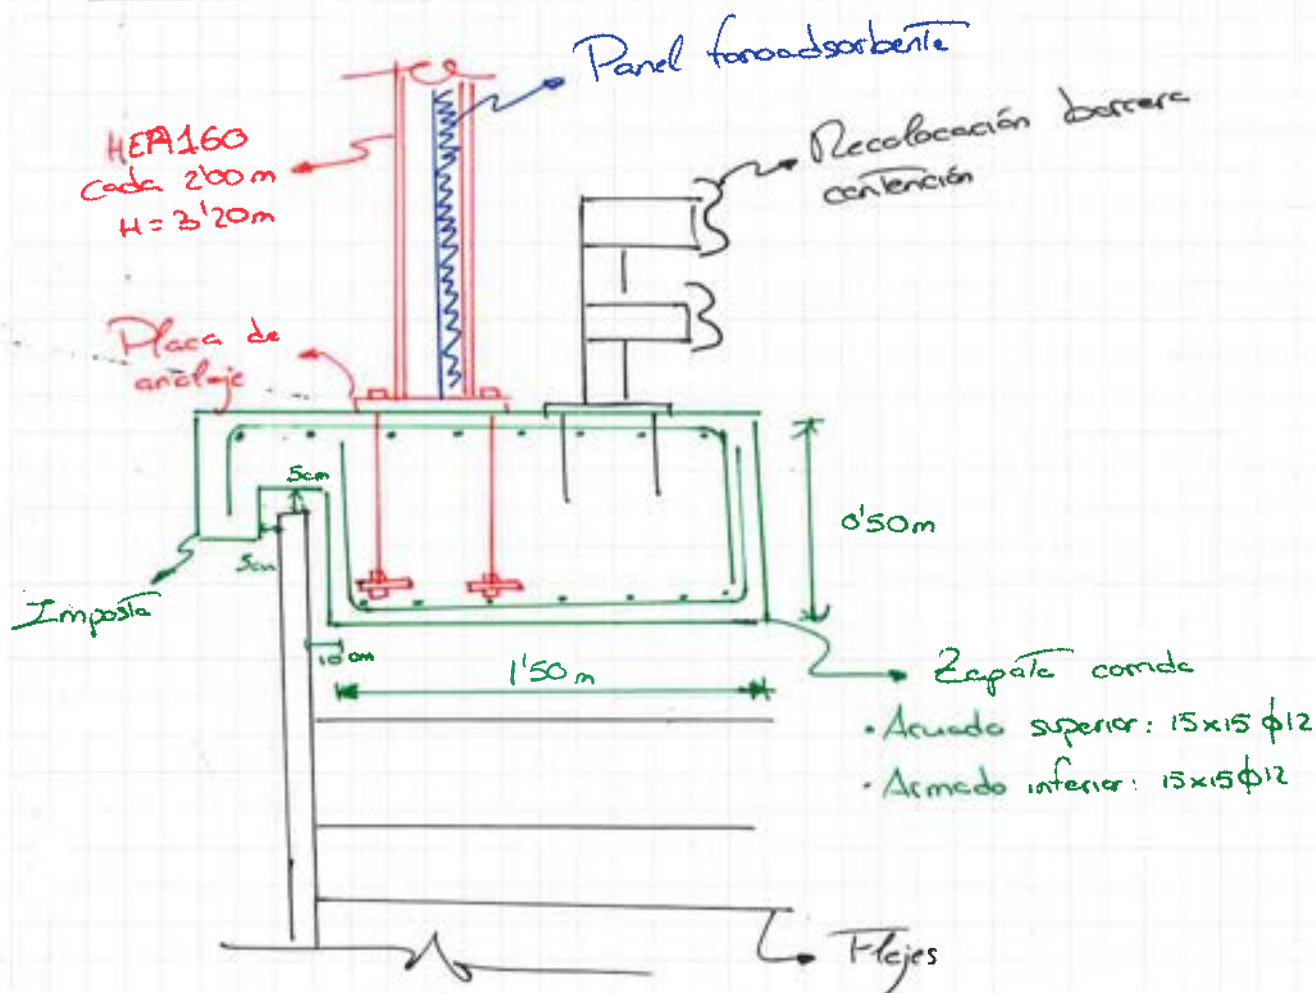 Panel fonoadsorbente
HEA160
cada 2'00m
H=3'20m
Recolocación barrera
contención
Placa de
anclaje
5cm
5cm
0'50m
Imposta
10cm
1'50m
Zapata corrida
• Armado superior: 15x15 ϕ12
• Armado inferior: 15x15 ϕ12
Flejes